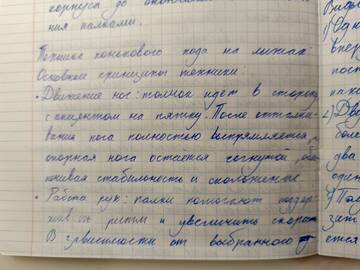 корпуса до
ния палками.
Техника конькового хода на лыжах
Основные принципы техники.
• Движение ног: толчок идет в сторону
с акцентом на пятку. После отталки-
вания нога полностью выпрямляется,
опорная нога остается согнутой, обес
чивая стабильность и скольжение.
• Работа рук: палки помогают поддер
живать ритм и увеличить скорость
В зависимости от выбранного
Виды
1) Одн
впер
пост
нахо
2) Дву
боле
два
один
3) Поп
зит
ется